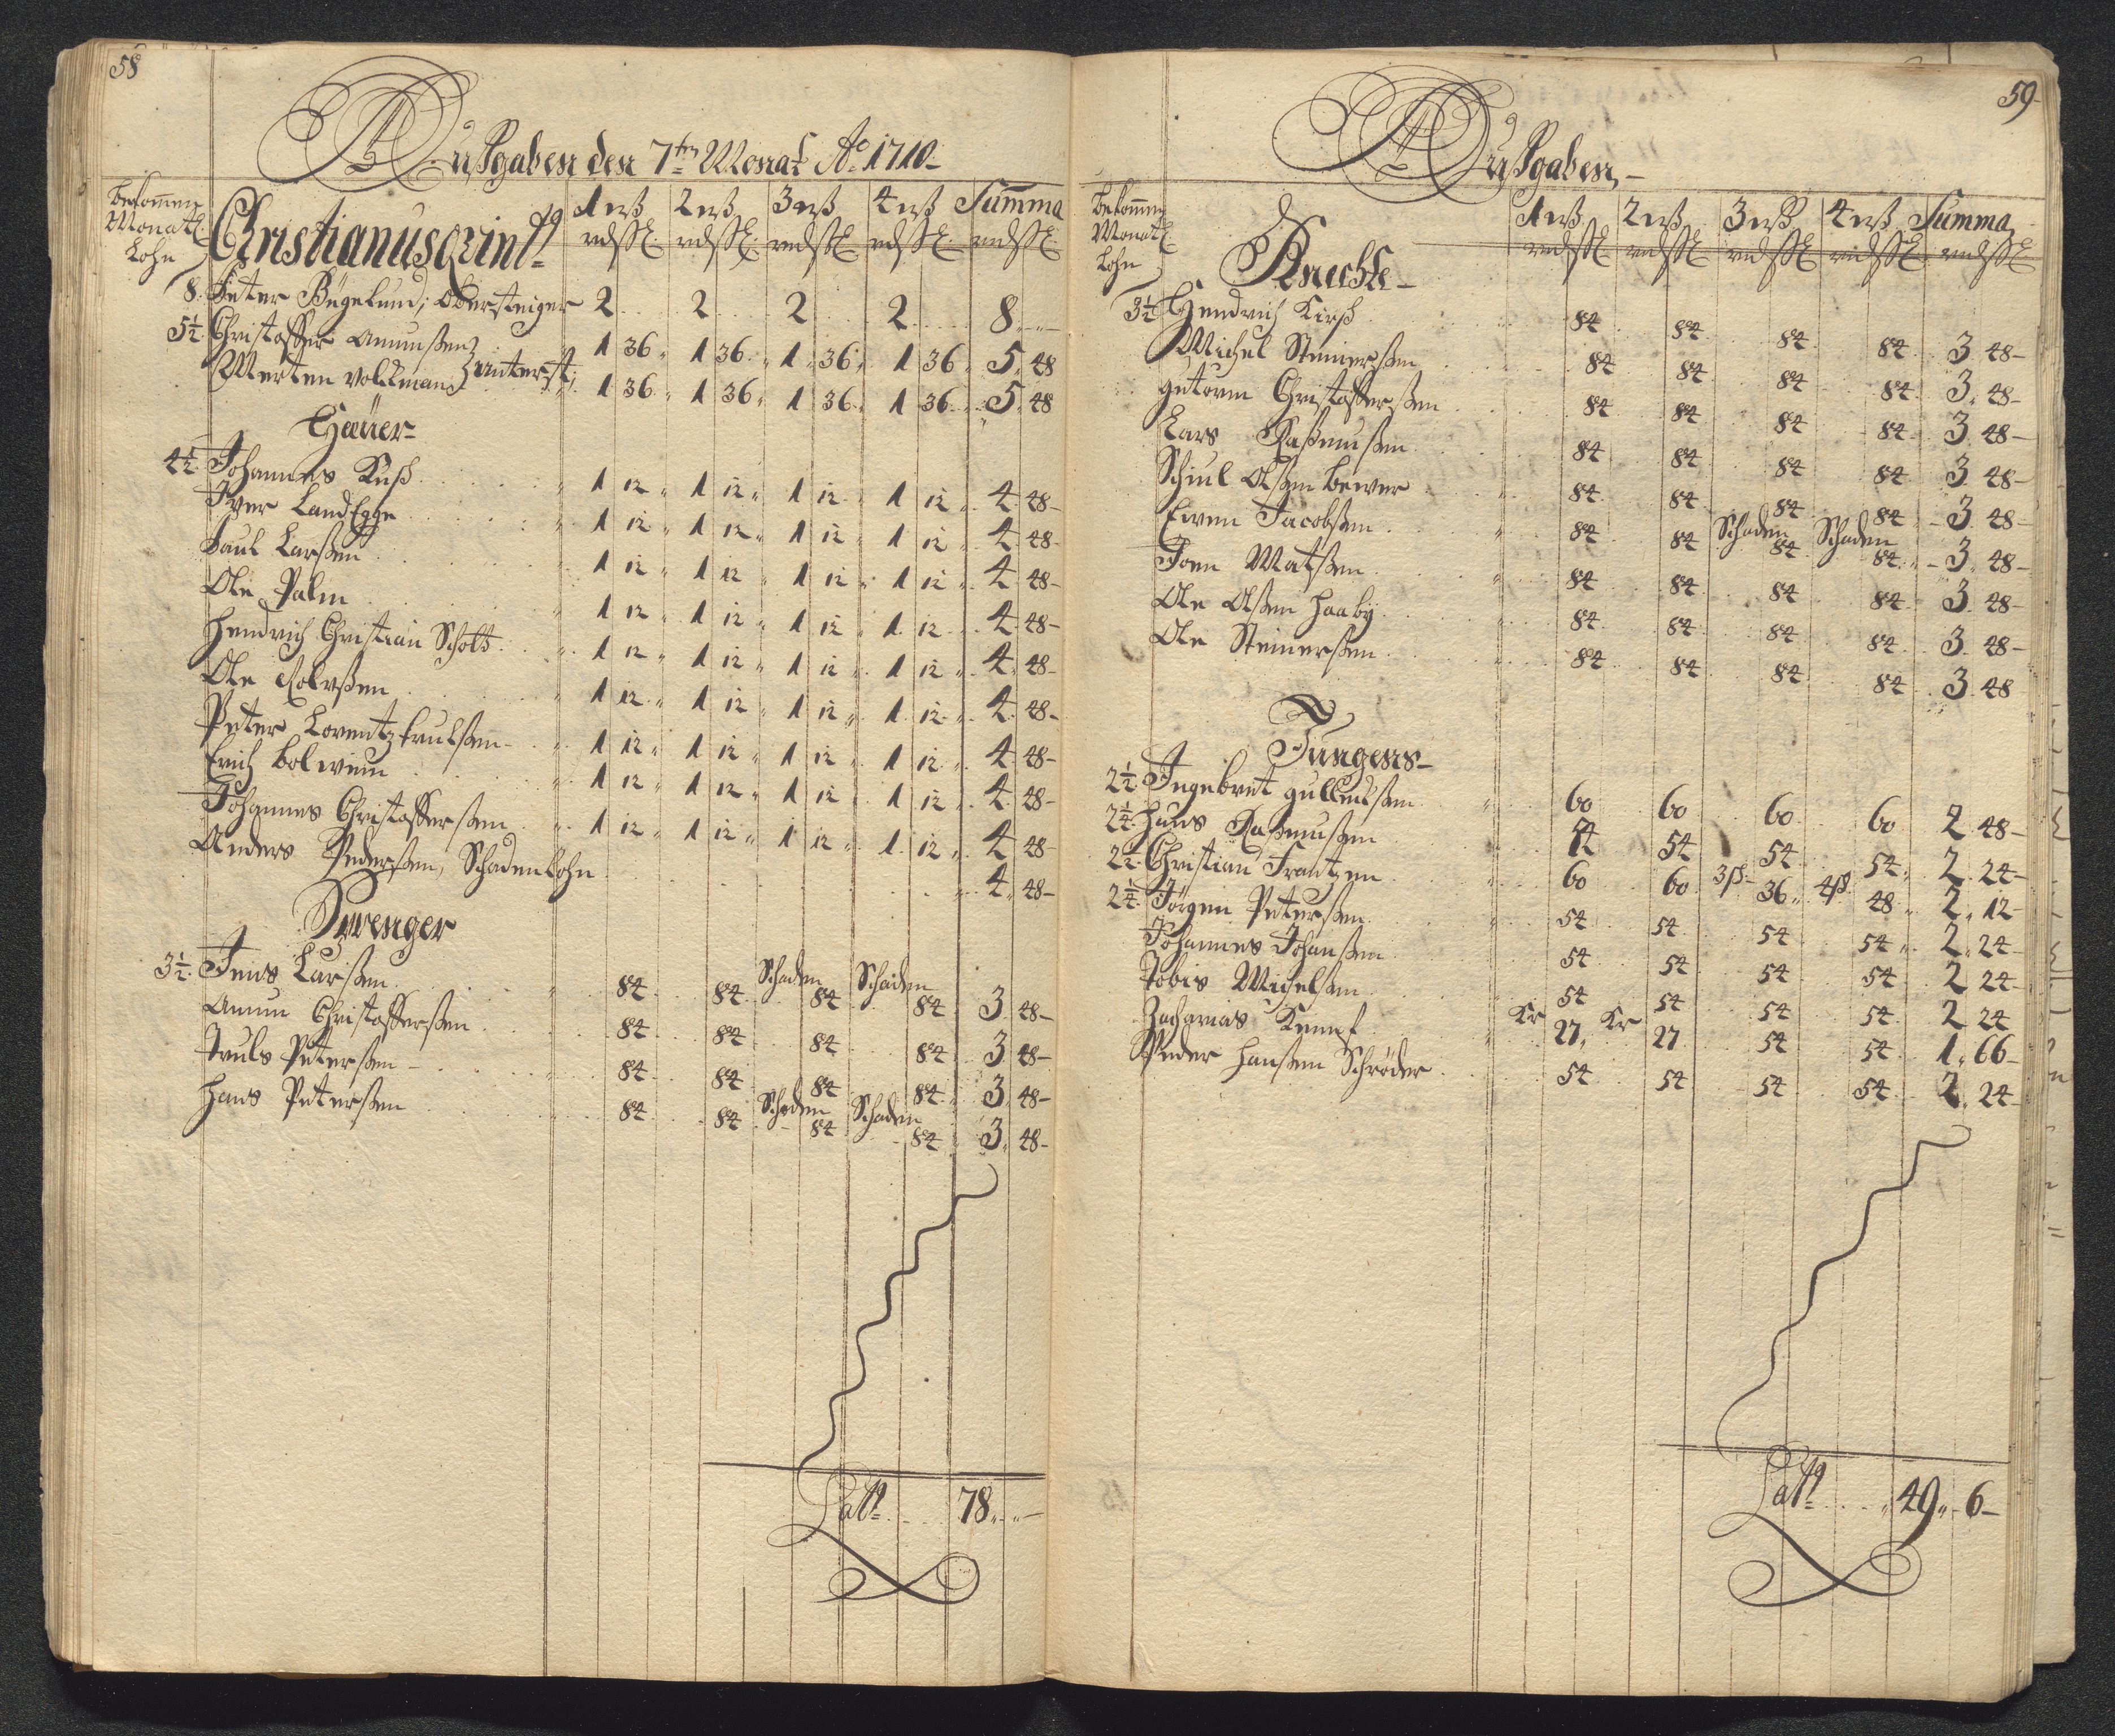 58
Außgaben den 7ten Monat Ao 1710
Bekommen Monatl. Lohn
Christianus Quint
1 erß 2 erß 3 erß 4 erß Summa
rdßl. rdßl. rdßl. rdßl. rdßl.
8. Peter Bügelund, Obersteiger 2 2 2 2 8
5½ Christoffer Amunßen 1 36 1 36 1 36 1 36 5 48
Merten Volckman } unterst: 1 36 1 36 1 36 1 36 5 48
Häuer
4½ Johannes Kuß 1 12 1 12 1 12 1 12 4 48
Iver LandEgge 1 12 1 12 1 12 1 12 4 48
Paul Larßen 1 12 1 12 1 12 1 12 4 48
Ole Palm 1 12 1 12 1 12 1 12 4 48
Hendrich Christian Scholtz 1 12 1 12 1 12 1 12 4 48
Ole Colvßen 1 12 1 12 1 12 1 12 4 48
Peter Lorentz 1 12 1 12 1 12 1 12 4 48
Erich Bolwinn 1 12 1 12 1 12 1 12 4 48
Johannes Christofferßen 1 12 1 12 1 12 1 12 4 48
Anders Pederßen, Schadenlohn 4 48
Sprenger
3½ Jens Larßen 84 84 Schaden 84 Schaden 84 3 48
Amun Christofferßen 84 84 84 84 3 48
Truls Peterßen 84 84 84 84 3 48
Hans Peterßen 84 84 Schaden 84 Schaden 84 3 48
Latq 78
59
Außgaben,
Bekommen Monatl Lohn
1 erß 2 erß 3 erß 4 erß Summa
rdßl rdßl rdßl rdßl rdßl
Knechte
3½ Hendrich Kirß 84 84 84 84 3 48
Michel Steinerßen 84 84 84 84 3 48
Gutorm Christofferßen 84 84 84 84 3 48
Lars Raßmußen 84 84 84 84 3 48
Schiul Olßen Bewer 84 84 84 84 3 48
Ewen Jacobßen 84 84 Schaden 84 Schaden 84 3 48
Joen Matßen 84 84 84 84 3 48
Ole Olßen Haaby 84 84 84 84 3 48
Ole Steinerßen 84 84 84 84 3 48
Jungens
2½ Ingebret Gullenßen 60 60 60 60 2 48
2¼ Hans Raßmußen 54 54 54 54 2 24
2½ Christian Frantzen 60 60 3ß 36 4ß 48 2 12
2¼ Jörgen Peterßen 54 54 54 54 2 24
Johannes Johanßen 54 54 54 54 2 24
Tobis Michelßen 54 54 54 54 2 24
Zacharias Kempf Kr 27 Kr 27 54 54 1 66
Peder Hanßen Schröder 54 54 54 54 2 24
Latq 49 6